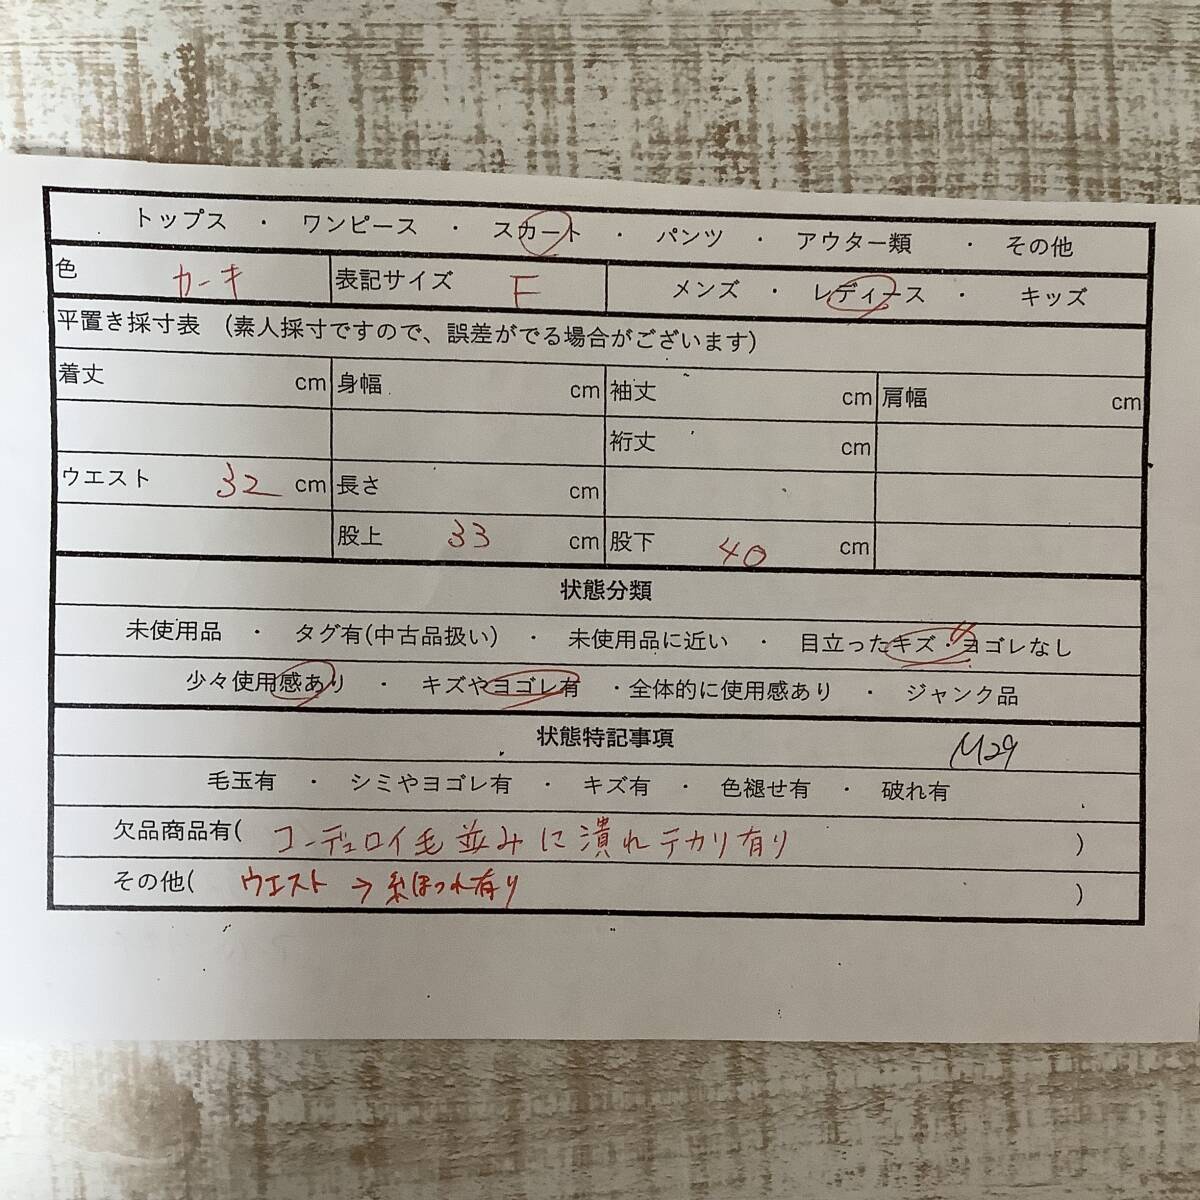 トップス ・ ワンピース ・ スカート ・ パンツ ・ アウター類 ・ その他
色 カーキ 表記サイズ F メンズ ・ レディース ・ キッズ
平置き採寸表 (素人採寸ですので、誤差がでる場合がございます)
着丈 cm 身幅 cm 袖丈 cm 肩幅 cm
裄丈 cm
ウエスト 32 cm 長さ cm
股上 33 cm 股下 40 cm
状態分類
未使用品 ・ タグ有(中古品扱い) ・ 未使用品に近い ・ 目立ったキズ・ヨゴレなし
少々使用感あり ・ キズやヨゴレ有 ・全体的に使用感あり ・ ジャンク品
状態特記事項 M29
毛玉有 ・ シミやヨゴレ有 ・ キズ有 ・ 色褪せ有 ・ 破れ有
欠品商品有( コーデュロイ毛並みに潰れテカリ有り )
その他( ウエスト → 糸ほつれ有り )